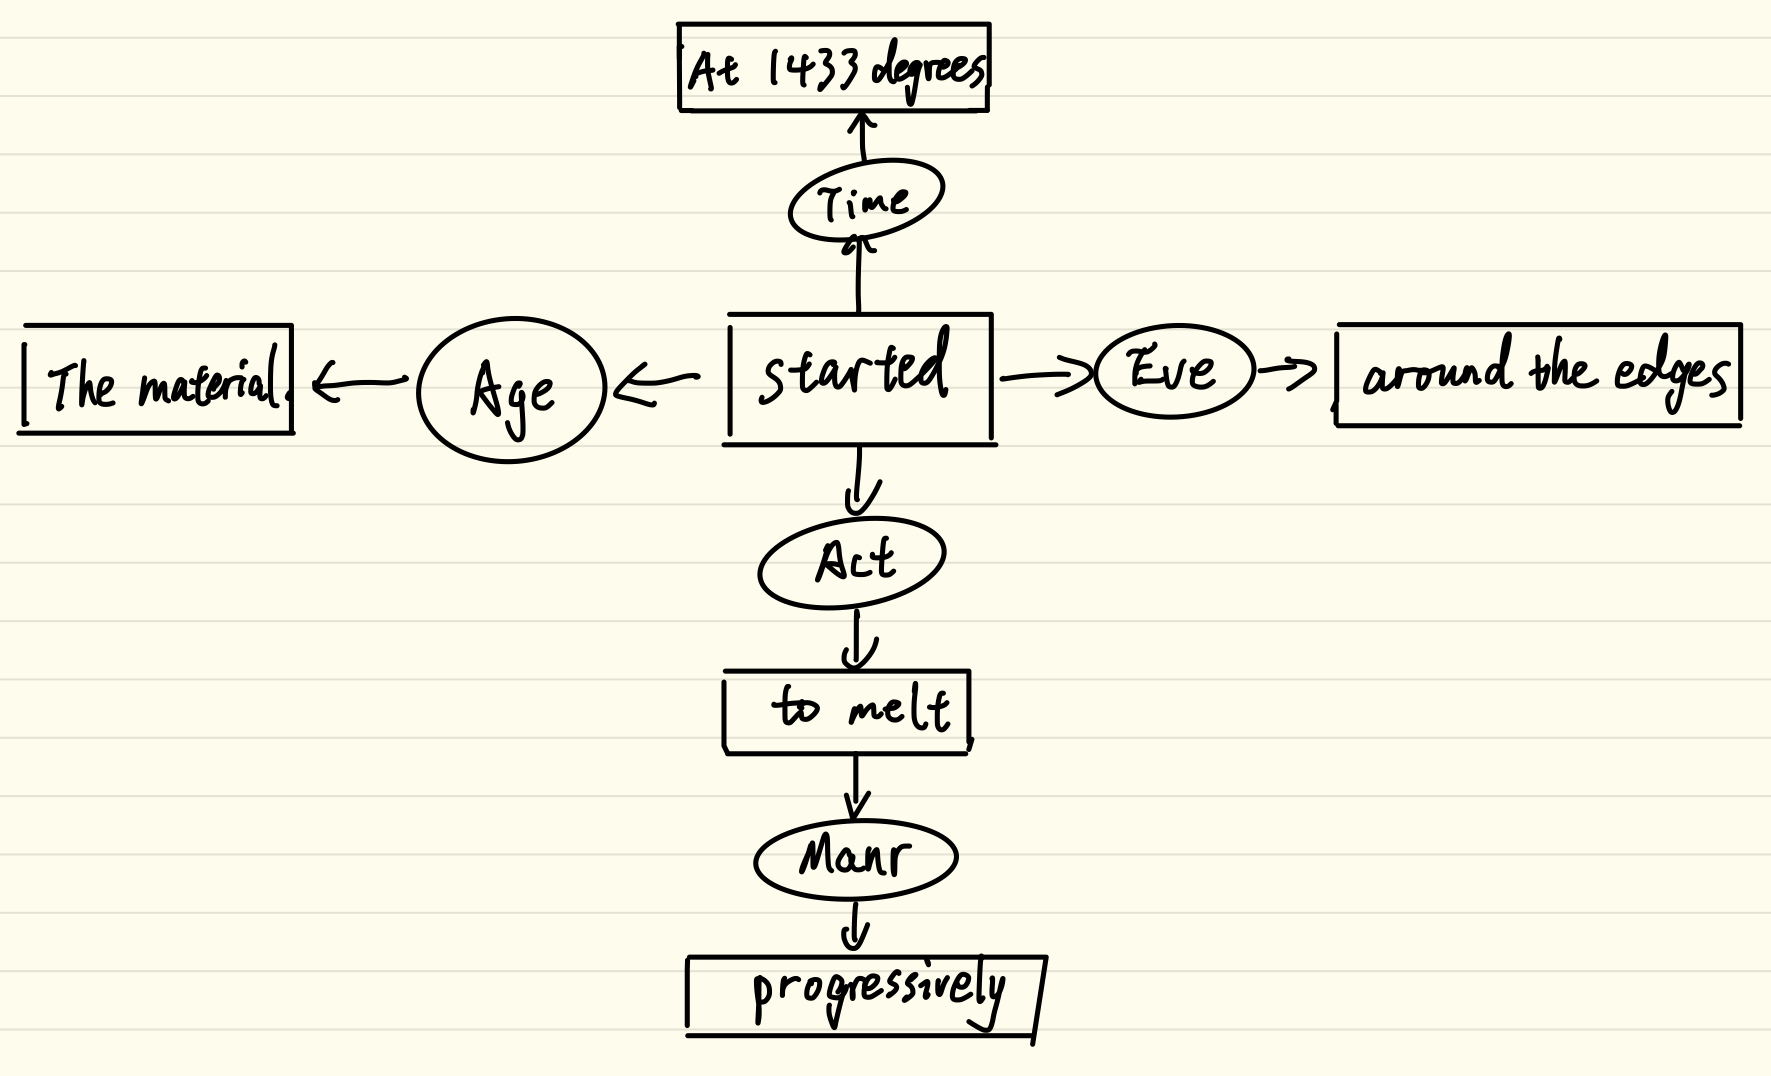 At 1433 degrees
Time
The material.
Age
started
Eve
around the edges
Act
to melt
Manr
progressively